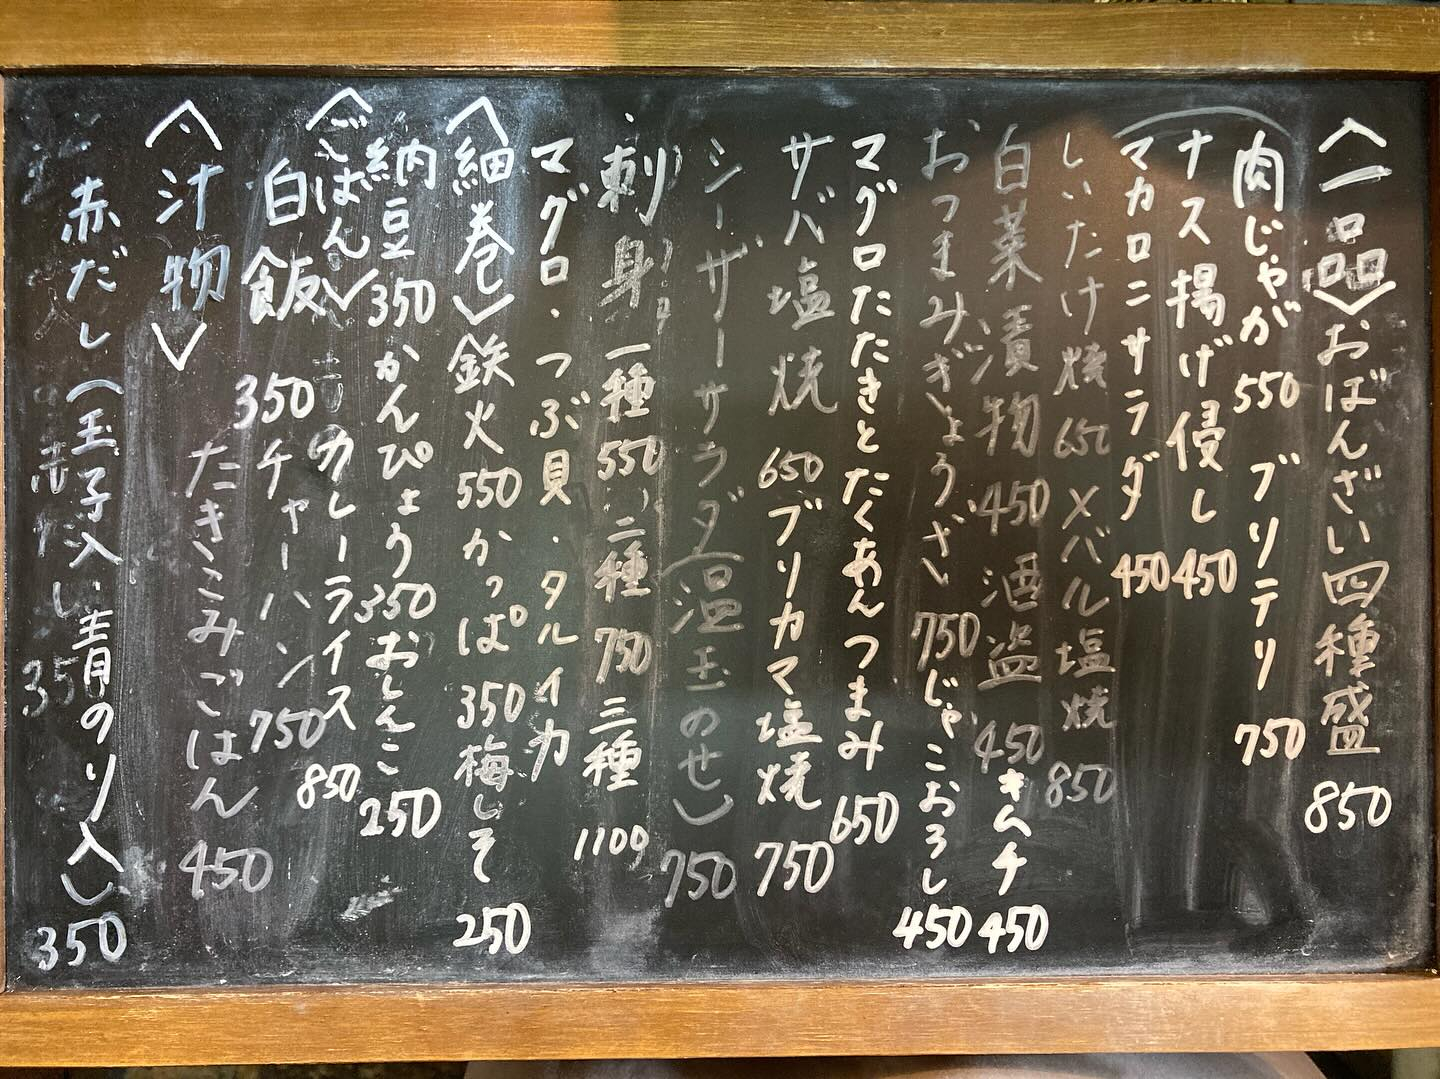 〈一品〉おばんざい四種盛 850
肉じゃが 550 ブリテリ 750
ナス揚げ侵し 450
マカロニサラダ 450
しいたけ焼 650 メバル塩焼 850
白菜漬物 450 酒盗 450 キムチ 450
おつまみぎょうざ 750 じゃこおろし 450
マグロたたきとたくあんつまみ 650
サバ塩焼 650 ブリカマ塩焼 750
シーザーサラダ(温玉のせ) 750
刺身 一種 550 二種 750 三種 1100
マグロ・つぶ貝・タルイカ
〈細巻〉鉄火 550 かっぱ 350 梅しそ 250
納豆 350 かんぴょう 350 おしんこ 250
〈ごはん〉カレーライス 850
白飯 350 チャーハン 750
たきこみごはん 450
〈汁物〉
赤だし(玉子入り青のり入) 350